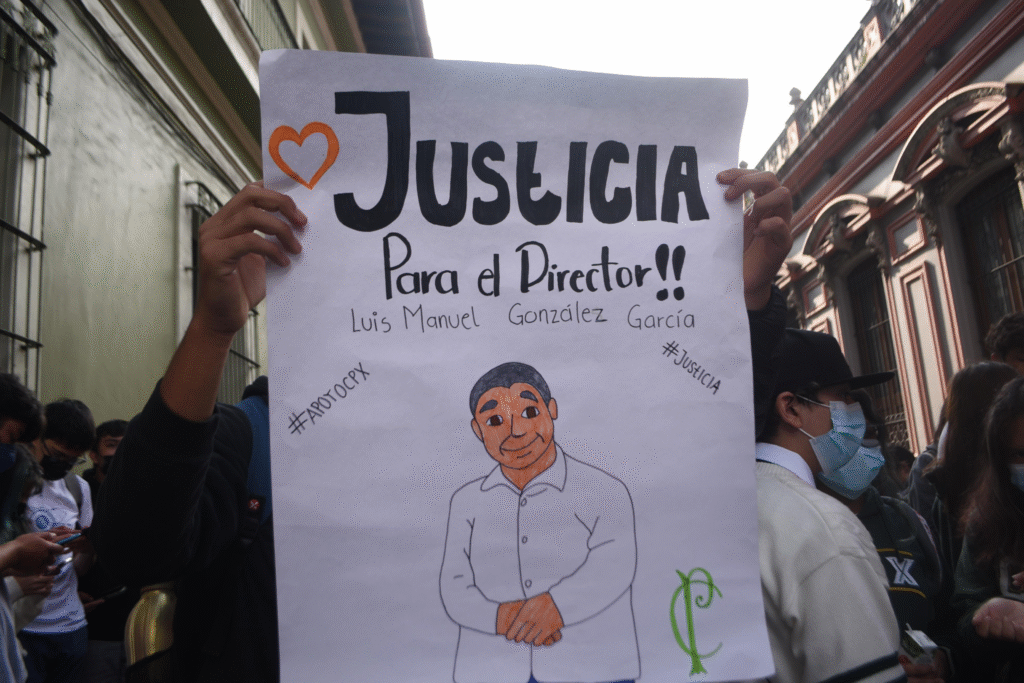 JUSTICIA
Para el Director!!
Luis Manuel González García
#APOTOCPX
#JUSTICIA
CP
X